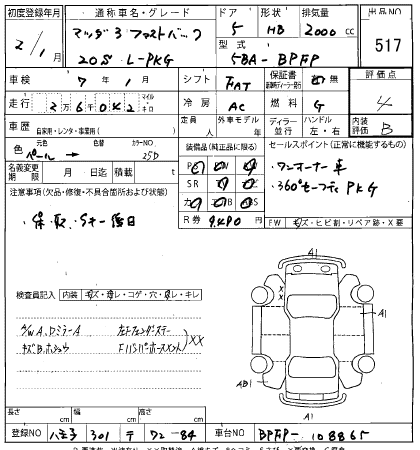 初度登録年月 通称車名・グレード ドア 形状 排気量 出品NO
2/1 マツダ3 ファストバック 5 HB 2000 cc 517
20S L-PKG 型式 5BA-BPFP
車検 7年1月 シフト FAT 保証書 無 燃料 G 評価点 4
走行 26042 マイル キロ 冷房 AC 内装評価 B
車歴 自家用・レンタ・事業用( ) 定員 人 外車モデル 年 ディーラー 並行 ハンドル 左・右
色 元色 色替 カラーNO 25D
パール →
名義変更期限 月 日迄 積載 t
装備品(純正品に限る) セールスポイント(正常に機能するもの)
・ワンオーナー車
・360°セーフティPKG
注意事項(欠品・修復・不具合箇所および状態)
・保、取、Sキー後日
R券 9,490 円
FW キズ・ヒビ割・リペア跡・X要
検査員記入 内装 キズ・コゲ・穴・キレ
A/W A、ドミラーA
キズB、ホシュウ
左フェンダーステー
XX
A1
X
X
A1
AB1
A1
長さ cm 幅 cm 高さ cm
登録NO 八王子 301 テ 72-84 車台NO BPFP-108865